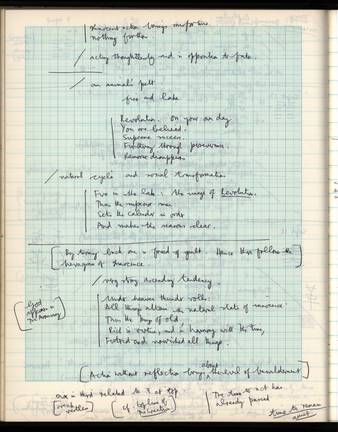 innocent action brings misfortune
nothing further
/ acting thoughtlessly and in opposition to fate.
/ an animal's pelt
fire and lake
Revolution. On your own day
You are believed.
Supreme success.
Furthering through perseverance.
Remorse disappears.
/ natural cycles and social transformation
Fire in the lake: the image of Revolution.
Thus the superior man
Sets the calendar in order
And makes the seasons clear.
By turning back one is freed of guilt. Hence there follows the
hexagram of Innocence
/ very strong ascending tendency
Under heaven thunder rolls:
All things attain the natural state of innocence.
Thus the kings of old,
Rich in virtue, and in harmony with the time,
Fostered and nourished all things.
[God
appears in
]
[Action without reflection
about
brings the evil of bewilderment]
related to
[cf.
The time to act has
already passed
time to remain
quiet